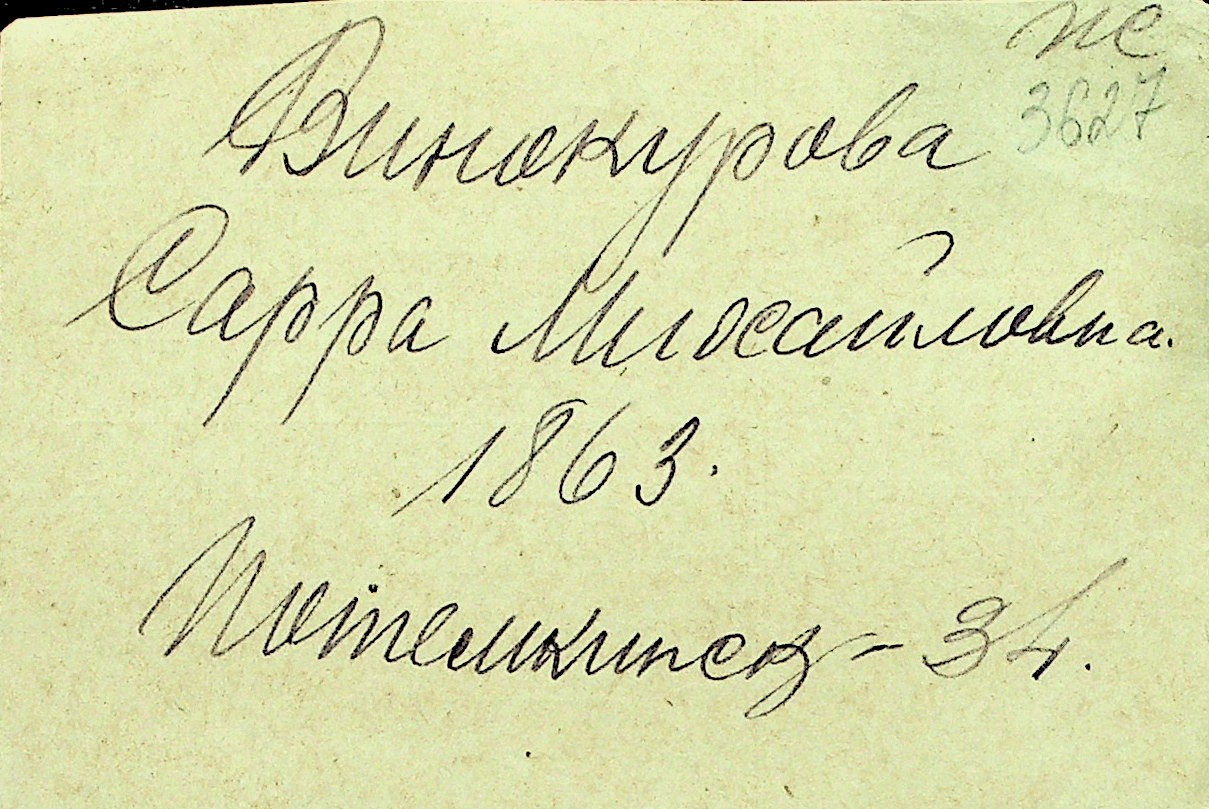 пс
3627
Винокурова
Сарра Михайловна.
1863.
Потемкинск - 34.